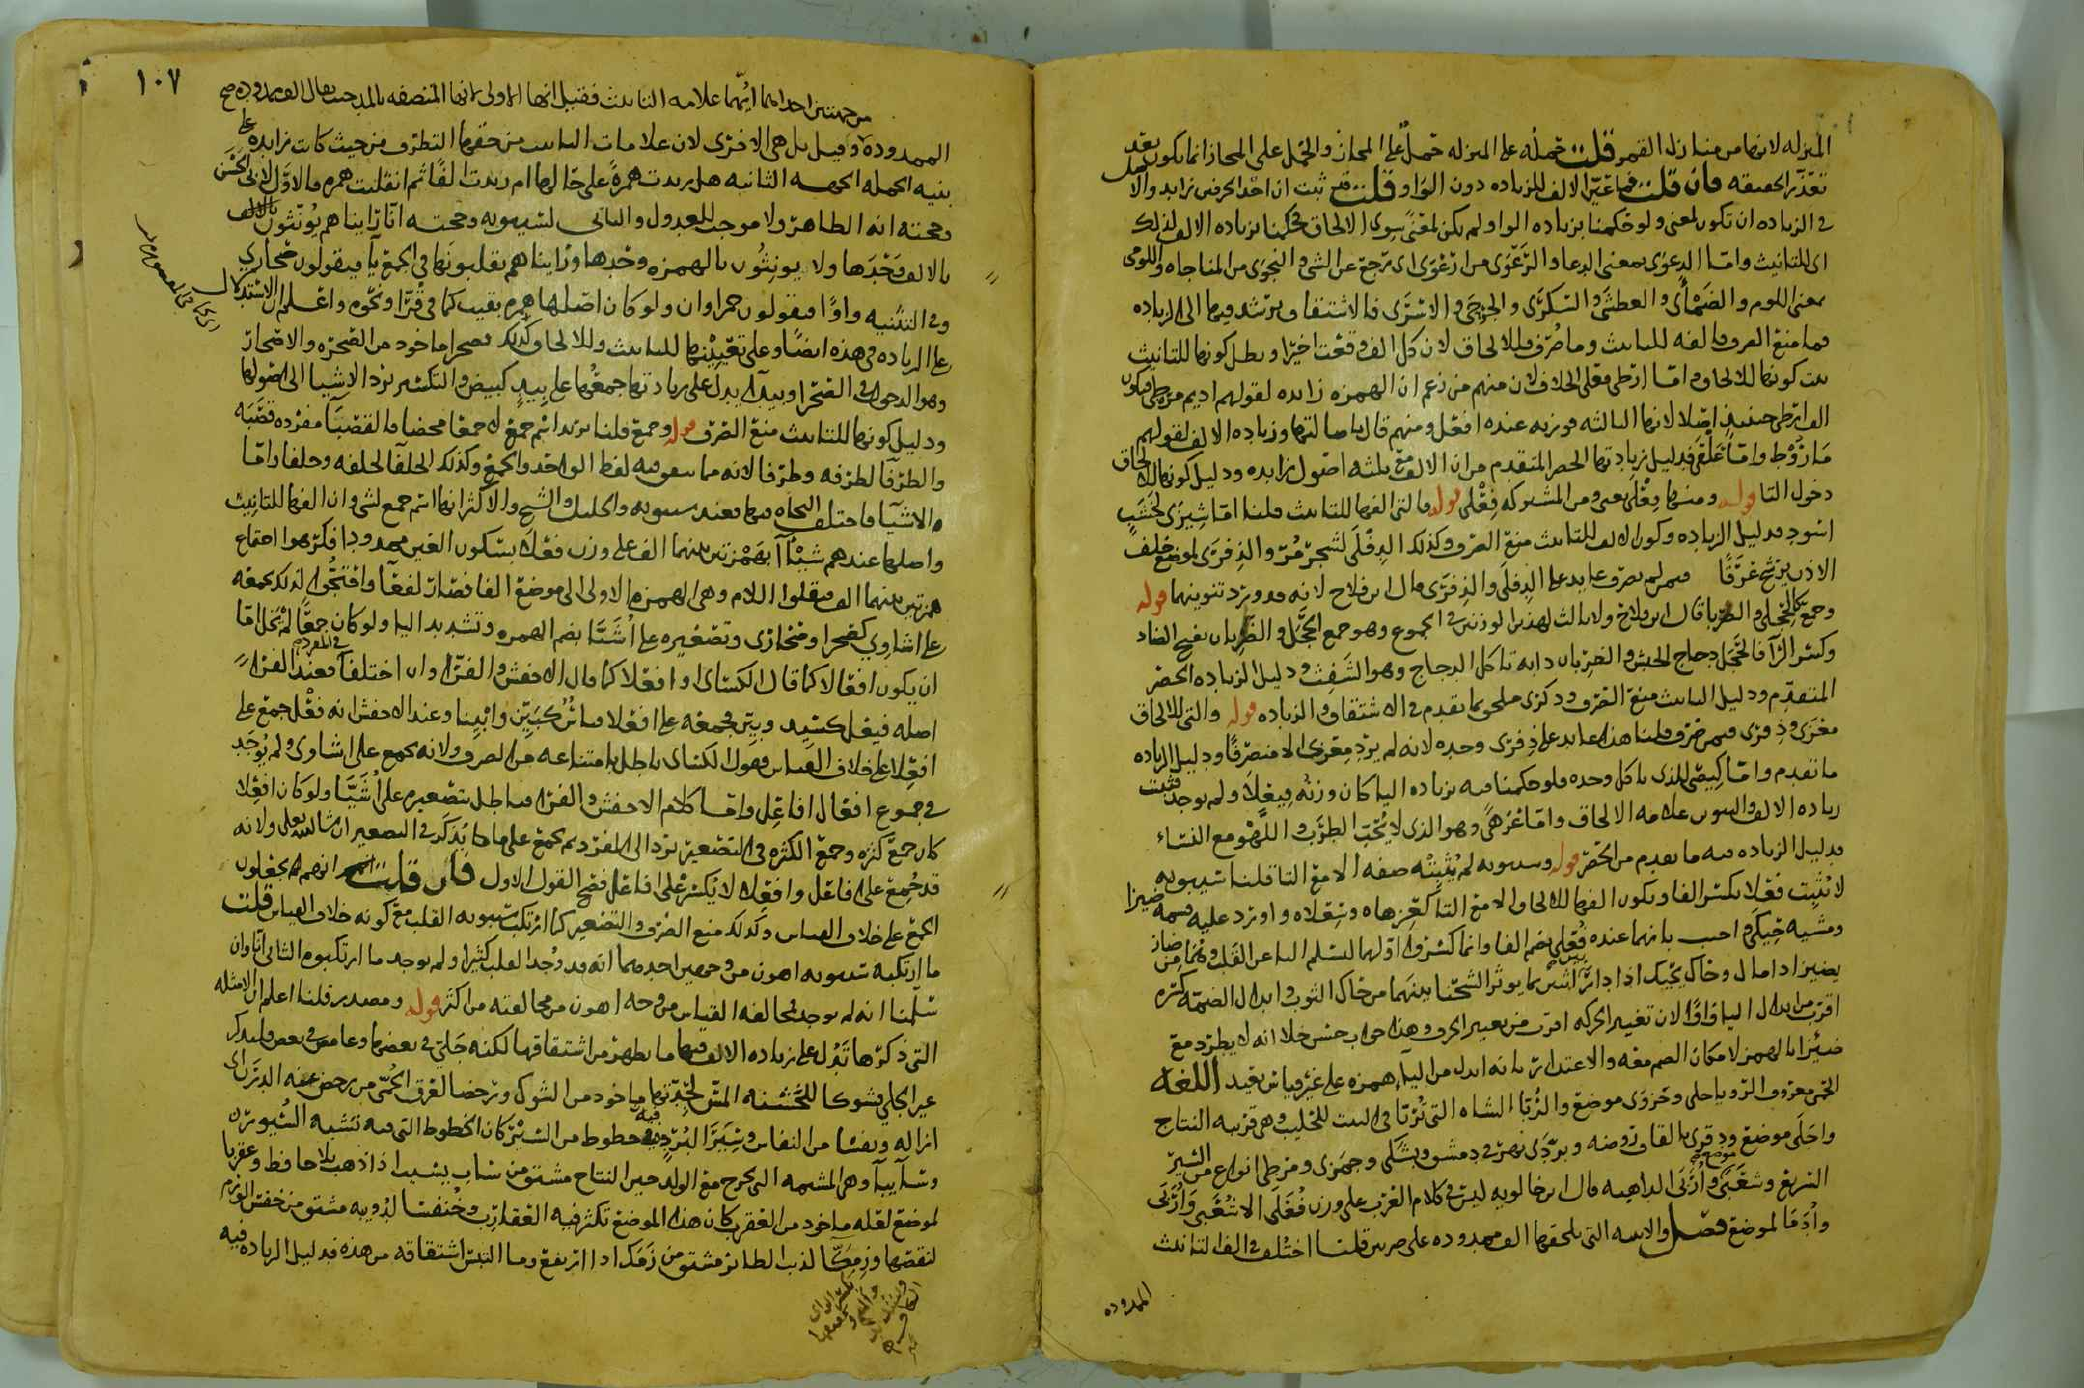 المنزله لانها من منازل القمر قلت حمله على المنزله حمل على المجاز والحمل على المجاز انما يكون بعد
تعذر الحقيقه فان قلت فما عين الالف للزياده دون الواو قلت قد ثبت ان احد الحرفين زايد والاصل
في الزياده ان تكون لمعنى ولو حكمنا بزياده الواو لم يكن لمعنى سوى الالحاق فحكمنا بزياده الالف لذلك
اى للتانيث واما الدعوى بمعنى الدعا والرعوى من ارعوى اى رجع عن الشى والنجوى من المناجاه واللومى
بمعنى اللوم والضمأى والعطشى والسكرى والجرحى والاسرى فالاشتقاق يرشد فيها الى الزياده
فما منع الصرف فالفه للتانيث وما صرف فللالحاق لان كل الف وقعت اخيرا وبطل كونها للتانيث
ثبت كونها للالحاق واما ارطى فعلى الخلاف لان منهم من زعم ان الهمزه زايده لقولهم اديم مرطى فيكون
الف ارطى حينئذ اصلا لانها الثالثه فوزنه عنده افعل ومنهم قال باصالتها وزياده الالف لقولهم
مأروط واما علقى فدليل زيادتها الحصر المتقدم من ان الالف مع ثلثه اصول زايده ودليل كونها للالحاق
دخول التا قوله ومنها فعلى يعنى ومن المشترك فعلى قوله فالتى الفها للتانيث قلنا اما شيزى لخشب
اسود فدليل الزياده وكون الالف للتانيث منع الصرف وكذلك الدفلى لشجر مر والذفرى لموضع خلف
الاذن يرشح عرقا فيمن لم يصرف عايد على الدفلى والذفرى قال ابن فلاح لانه قد ورد تنوينهما قوله
وجمع كالحجلى والظربى قال ابن فلاح ولا ثالث لهذين الوزنين فى الجموع وهو جمع الحجل والظربان بفتح الضاد
وكسر الرا فالحجل دجاج الحبش والظربان دابه تاكل الدجاج وهو الشفت ودليل الزياده الحصر
المتقدم ودليل التانيث منع الصرف وذكرى ملحق بما تقدم فى الاشتقاق والزياده قوله والتى للالحاق
معزى وذفرى فيمن صرف قلنا هذا عايد على ذفرى وحده لانه لم يرد معزى الا منصرفا ودليل الزياده
ما تقدم واما كيصى للذى ياكل وحده فلو حكمنا فيه بزياده اليا كان وزنه فيعلا ولم يوجد فثبت
زياده الالف والتنوين علامه الالحاق واما عزهى وهو الذى لا يحب الطرب واللهو مع النساء
فدليل الزياده فيه ما تقدم من الحصر قوله وسيبويه لم يثبته صفه الا مع التا قلنا سيبويه
لا يثبت فعلا بكسر الفا ويكون الفها للالحاق الا مع التا كعزهاه وسعلاه واورد عليه قسمه ضيزا
ومشيه حيكى احب بانهما عنده فعلى بضم الفا وانما كسروا اولها لتسلم اليا عن القلب وهما من ضاز
يضيز اذا مال وحاك يحيك اذا
اقرب من ابدال اليا واوا لان تغيير الحركه اقرب من تغيير الحرف وهذا جواب حسن خلا انه لا يطرد مع
ضيزا بالهمز لامكان الضم معه والاعتذار بانه ابدل من اليا همزه على غير قياس بعيد اللغه
الحمى معروف الرؤيا حلمى وحزوى موضع والربا الشاه التى تربا فى البيت للحليب وهى قريبه النتاج
واجلى موضع ودقرى بالقاف روضه وبردى نهر فى دمشق وبشكى وجمزى ومرطى انواع من السير
السريع وشعبى وأربى الداهيه قال ابن خالويه ليس فى كلام العرب على وزن فعلى الا شعبى وأربى
وأدمى لموضع فصل والابنيه التى تلحقها الف ممدوده على ضربين قلنا اختلف فى الف التانيث
الممدوده
١٠٧
من جهتين احداهما ايهما علامه التانيث فقيل انها الاولى لانها المتصفه بالمد حيث يقال الف ممدوده صح
الممدوده وقيل بل هى الاخرى لان علامات التانيث من حقها التطرف من حيث كانت زايده على
بنيه الكلمه الجهه الثانيه هل زيدت همزه على حالها ام زيدت الفا ثم انقلبت همزه فالاول لابى الحسن
وحجته انه الظاهر ولا موجب للعدول والثانى لسيبويه وحجته انا راينا هم يؤنثون بالالف
بالالف وحدها ولا يؤنثون بالهمزه وحدها وراينا هم يقلبونها فى الجمع يا فيقولون صحارى
وفى التثنيه واوا فيقولون حمراوان ولو كان اصلها همزه بقيت كما فى قرا ونحوه واعلم ان الاستدلال
على الزياده فى هذه ايضا وعلى تعيينها للتانيث وللالحاق كذلك فصحرا ماخوذ من الصحره والاصحار
وهو الدخول فى الصحرا وبيدا يدل على زيادتها جمعها على بيد كبيض والتكسير يرد الاشيا الى اصولها
ودليل كونها للتانيث منع الصرف قوله وجمع قلنا يريد اسم جمع لا جمعا محضا فالقصبا مفرده قصبه
والطرفا لطرفه وطرفا لانه مما يستوى فيه لفظ الواحد والجمع وكذلك الحلفا لحلفه وحلفا واما
الاشيا فاختلف النحاه فيها فعند سيبويه والخليل والشيخ والاكثر انها اسم جمع لشى وان الفها للتانيث
واصلها عندهم شيئآ بهمزتين بينهما الف على وزن فعلا بسكون العين ممدودا فكرهوا اجتماع
همزتين بينهما الف فنقلوا اللام وهى الهمزه الاولى الى موضع الفا فصار لفعا وافتتحوا لذلك بجمعه
على اشاوى كصحرا وصحارى وتصغيره على اشيا بضم الهمزه وتشديد اليا ولو كان جمعا لم يخل اما
ان يكون افعالا كما قال الكسائى او افعلا كما قال الاخفش والفرا وان اختلفا فعند الفرا
اصله فيعل كسيد وبين فجمعه على افعلا قياس كبين وابينا وعند الاخفش انه فعل جمع على
افعلا على خلاف القياس فقول الكسائى باطل بامتناعه من الصرف ولانه يجمع على اشاوى ولم يوجد
فى جموع افعال افاعل واما كلام الاخفش والفرا فباطل بتصغيره على اشيا ولو كان افعلا
كان جمع كثره وجمع الكثره فى التصغير يرد الى المفرد ثم يجمع على ما يذكر فى التصغير ان شا الله تعالى ولانه
قد جمع على فاعل وافعلا لا يكسر على افاعل فصح القول الاول فان قلت انهم يجعلون
الجمع على خلاف القياس وكذلك منع الصرف والتصغير كما ارتكب سيبويه القلب مع كونه خلاف القياس قلت
ما ارتكبه سيبويه اهون من وجهين احدهما انه قد وجد القلب كثيرا ولم يوجد ما ارتكبوه الثانى انا وان
سلمنا انه لم يوجد فمخالفه القياس من وجه اهون من مخالفته من اكثر قوله ومصدر قلنا اعلم ان الامثله
التى ذكرها تدل على زياده الالف فيها ما يظهر من اشتقاقها لكنه جلى فى بعضها وغامض فى بعض فلنذكر
غير الجلى فشوكا للخشنه المس لجدتها ماخوذ من الشوك ورحضا العرق الحمى من رحض عنه الدرن اى
ازاله ونفسا من النفاس وسيرا لبرد فيه خطوط من السير كان الخطوط التى فيه تشبه السيور
وسابيا وهى المشيمه التى تخرج مع الولد حين النتاج مشتق من ساب يسيب اذا ذهب بلا حافظ وعقربا
لموضع لعله ماخوذ من العقرب كان هذا الموضع تكثر فيه العقارب وخنفسا لدويبه مشتق من خفس
لنقصها وزمكا لذنب الطائر مشتق من زمك اذا ارتفع وما التبس اشتقاقه من هذه فدليل الزياده فيه